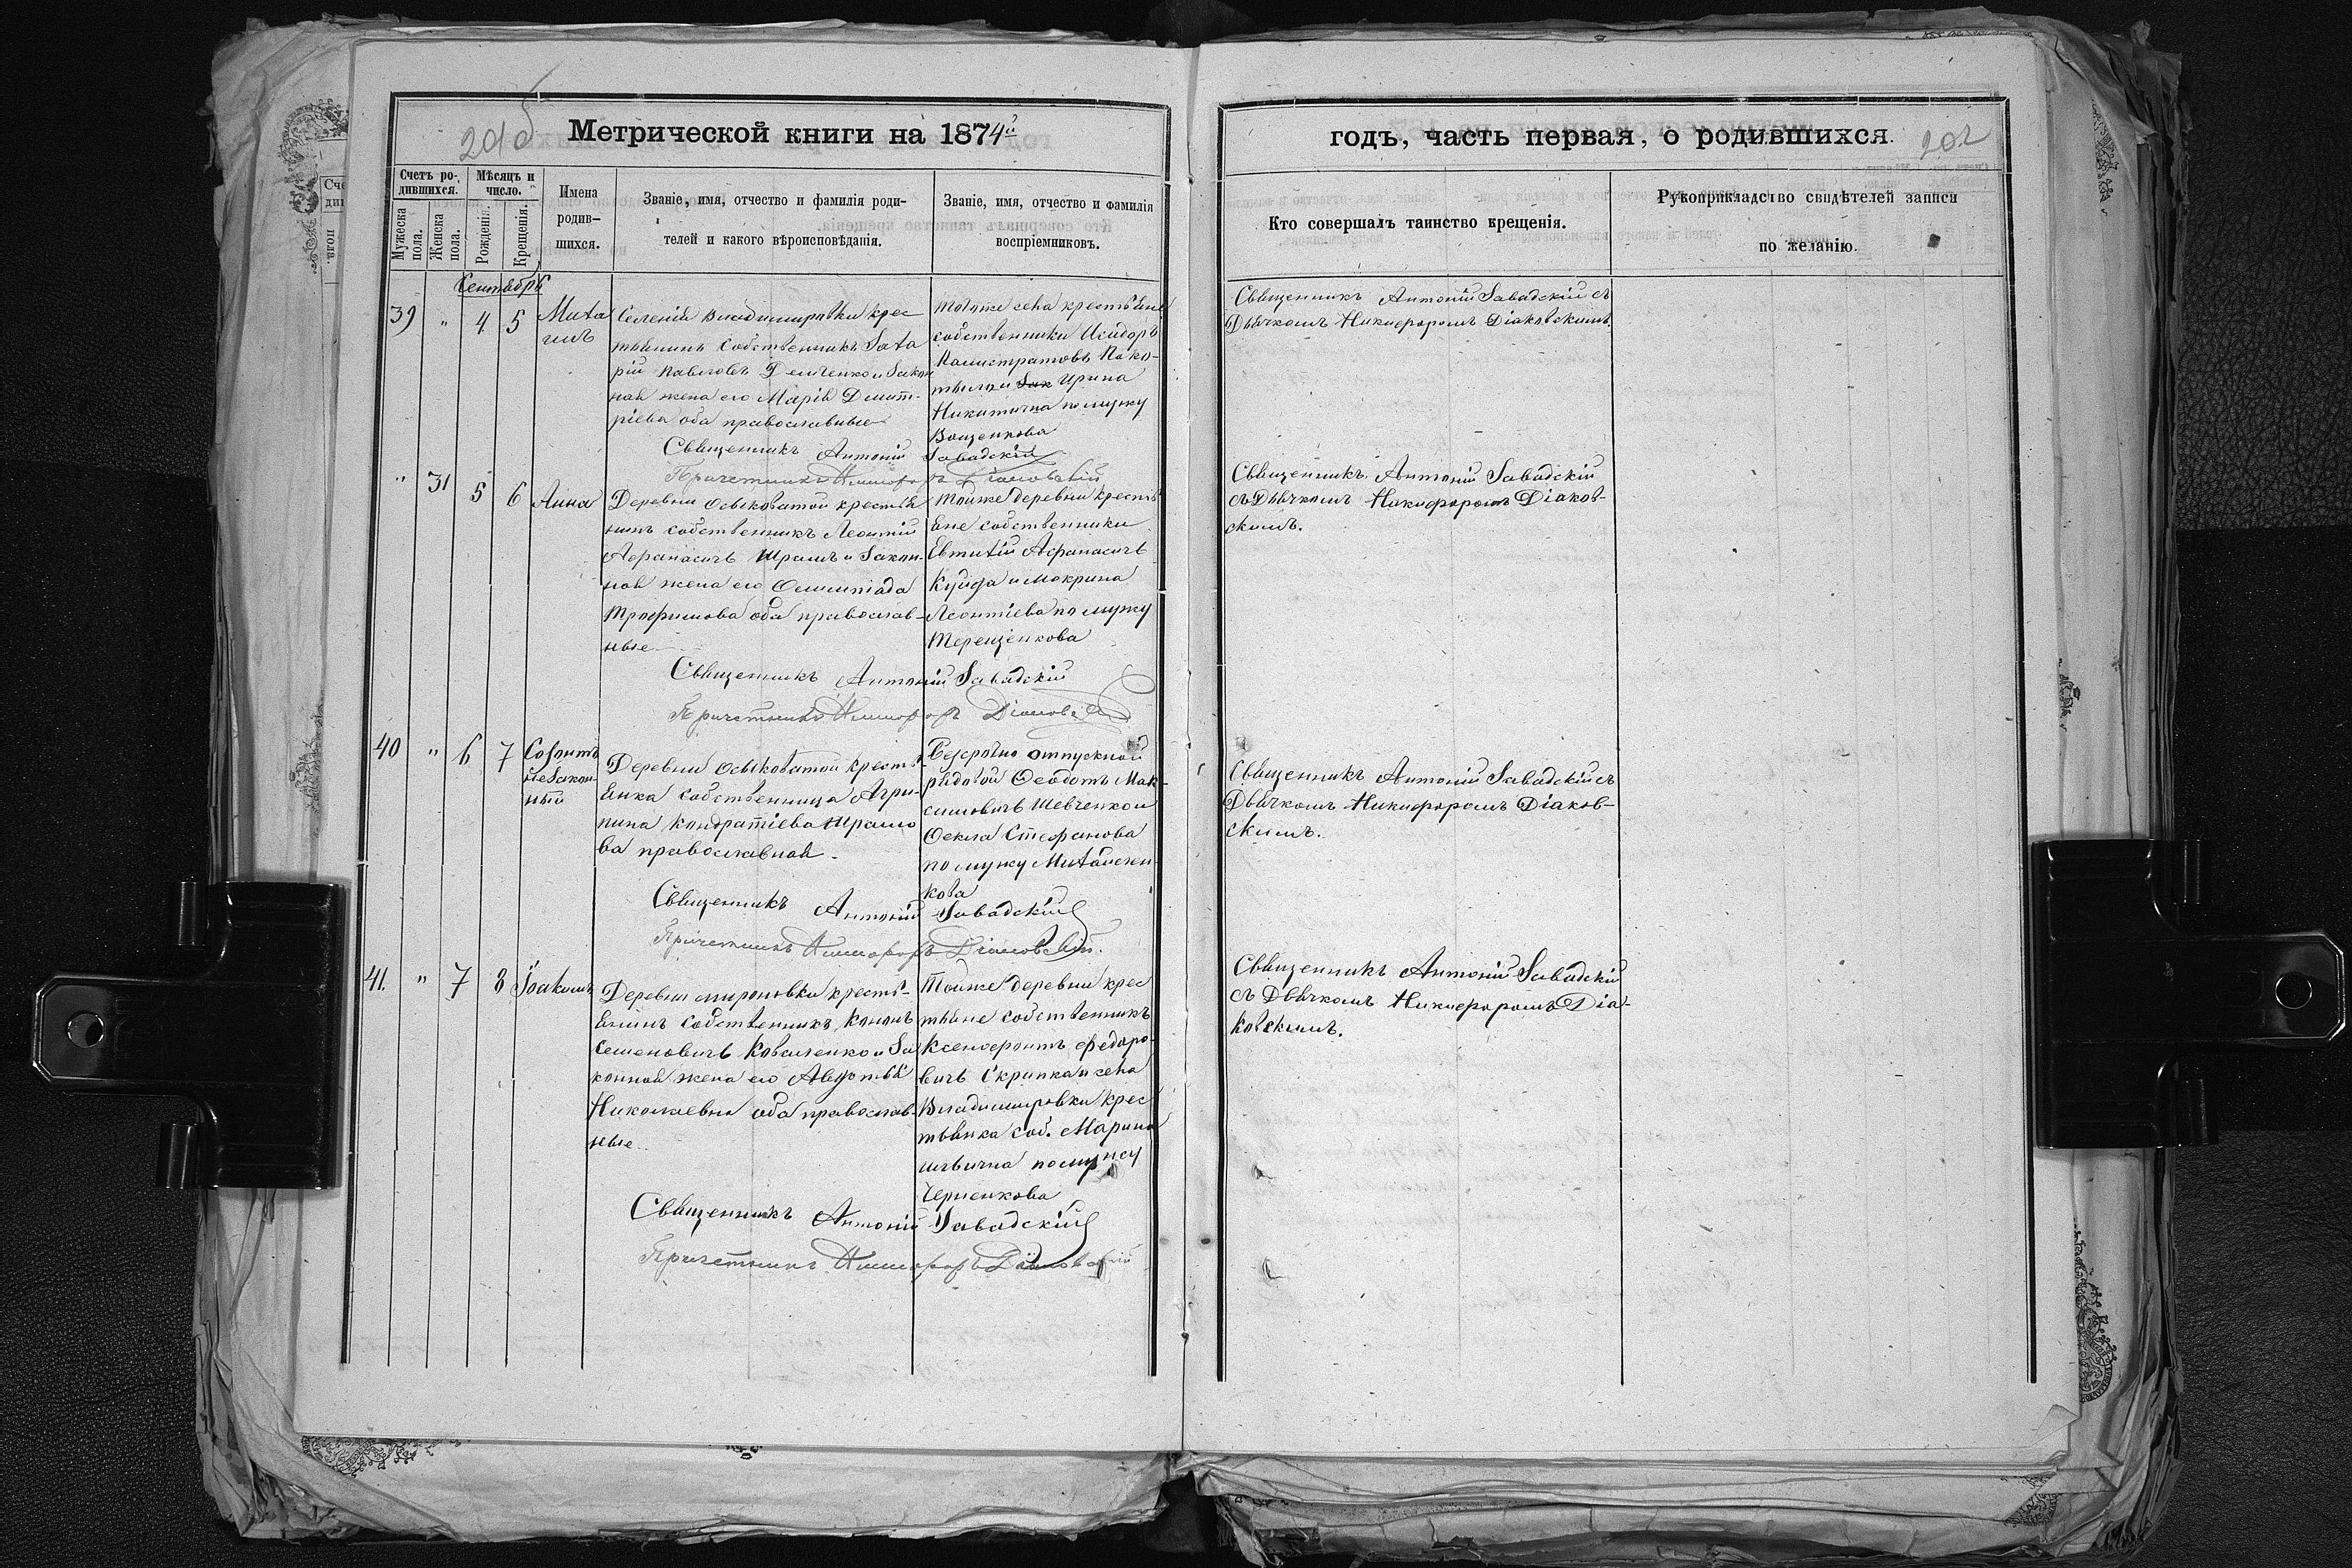 201 б
Метрической книги на 1874й
Счетъ ро-
дившихся.
Мужеска пола.
Женска пола.
Мѣсяцъ и
число.
Рожденія.
Крещенія.
Имена
родив-
шихся.
Званіе, имя, отчество и фамилія роди-
телей и какого вѣроисповѣданія.
Званіе, имя, отчество и фамилія
воспріемниковъ.
Сентябрь
39 " 4 5
Миха
илъ
Селенія Владимировки крес
тьянинъ собственникъ Заха
рій Павловъ Демченко и закон
ная жена его Марія Димит-
ріева оба православные
тогоже села крестьяне
собственники Исидоръ
Калистратовъ Пако-
тыло и Зак Ирина
Никитична по мужу
Ващенкова
Священникъ Антоній Завадскій
Причетникъ Никифоръ Діаковскій
" 31 5 6 Анна
Деревни Осыковатой крестья
нинъ собственникъ Леонтій
Афанасичъ Шрамъ и закон-
ная жена его Олимпіада
Трофимова оба православ-
ные
тойже деревни кресть
яне собственники
Евтихій Афанасичъ
Куйда и Мокрина
Леонтіева по мужу
Терещенкова
Священникъ Антоній Завадскій
Причетникъ Никифоръ Діаковскій
40 " 6 7
Созонтъ
незакон-
ный
Деревни Осыковатой кресть-
янка собственница Агри-
пина Кондратіева Шрамо
ва православная.
Безсрочно отпускной
рядовой Феодотъ Мак-
симовичъ Шевченко и
Фекла Стефанова
по мужу Михайлен-
кова
Священникъ Антоній Завадскій
Причетникъ Никифоръ Діаковскій.
41. " 7 8 Іоакимъ
Деревни Мироновки кресть-
янинъ собственникъ Кононъ
Семеновичъ Коваленко и за
конная жена его Авдотья
Николаевна оба православ-
ные
Тойже деревни крес
тьяне собственникъ
Ксенофонтъ Федоро-
вичъ Скрипка и села
Владимировки крес
тьянка соб. Марина
Ильична по мужу
Черненкова
Священникъ Антоній Завадскій
Причетникъ Никифоръ Діаковскій
годъ, часть первая, о родившихся.
202
Кто совершалъ таинство крещенія.
Рукоприкладство свидѣтелей записи
по желанію.
Священникъ Антоній Завадскій съ
Дьячкомъ Никифоромъ Діаковскимъ.
Священникъ Антоній Завадскій
съ Дьячкомъ Никифоромъ Діаков-
скимъ.
Священникъ Антоній Завадскій съ
Дьячкомъ Никифоромъ Діаков-
скимъ.
Священникъ Антоній Завадскій
съ Дьячкомъ Никифоромъ Діа-
ковскимъ.